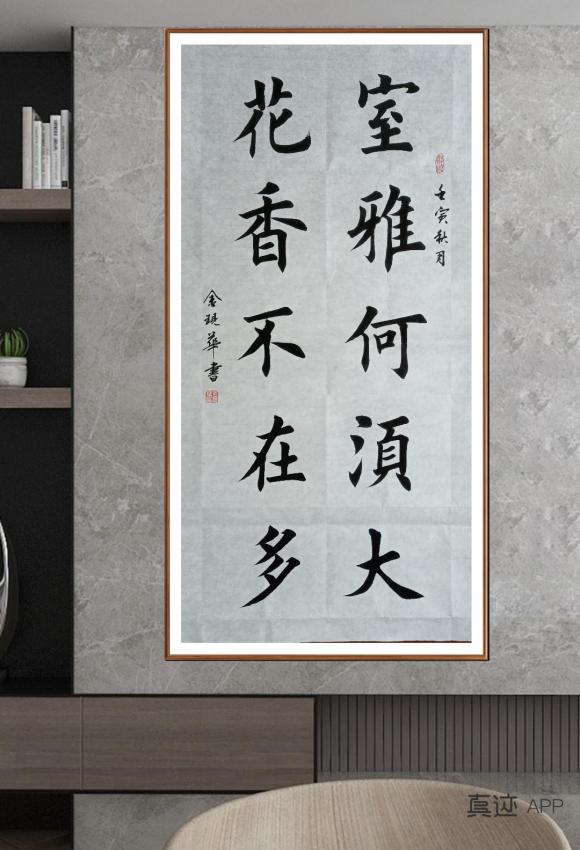 壬寅秋月
室雅何湏大
花香不在多
舍琨華書
真迹 APP